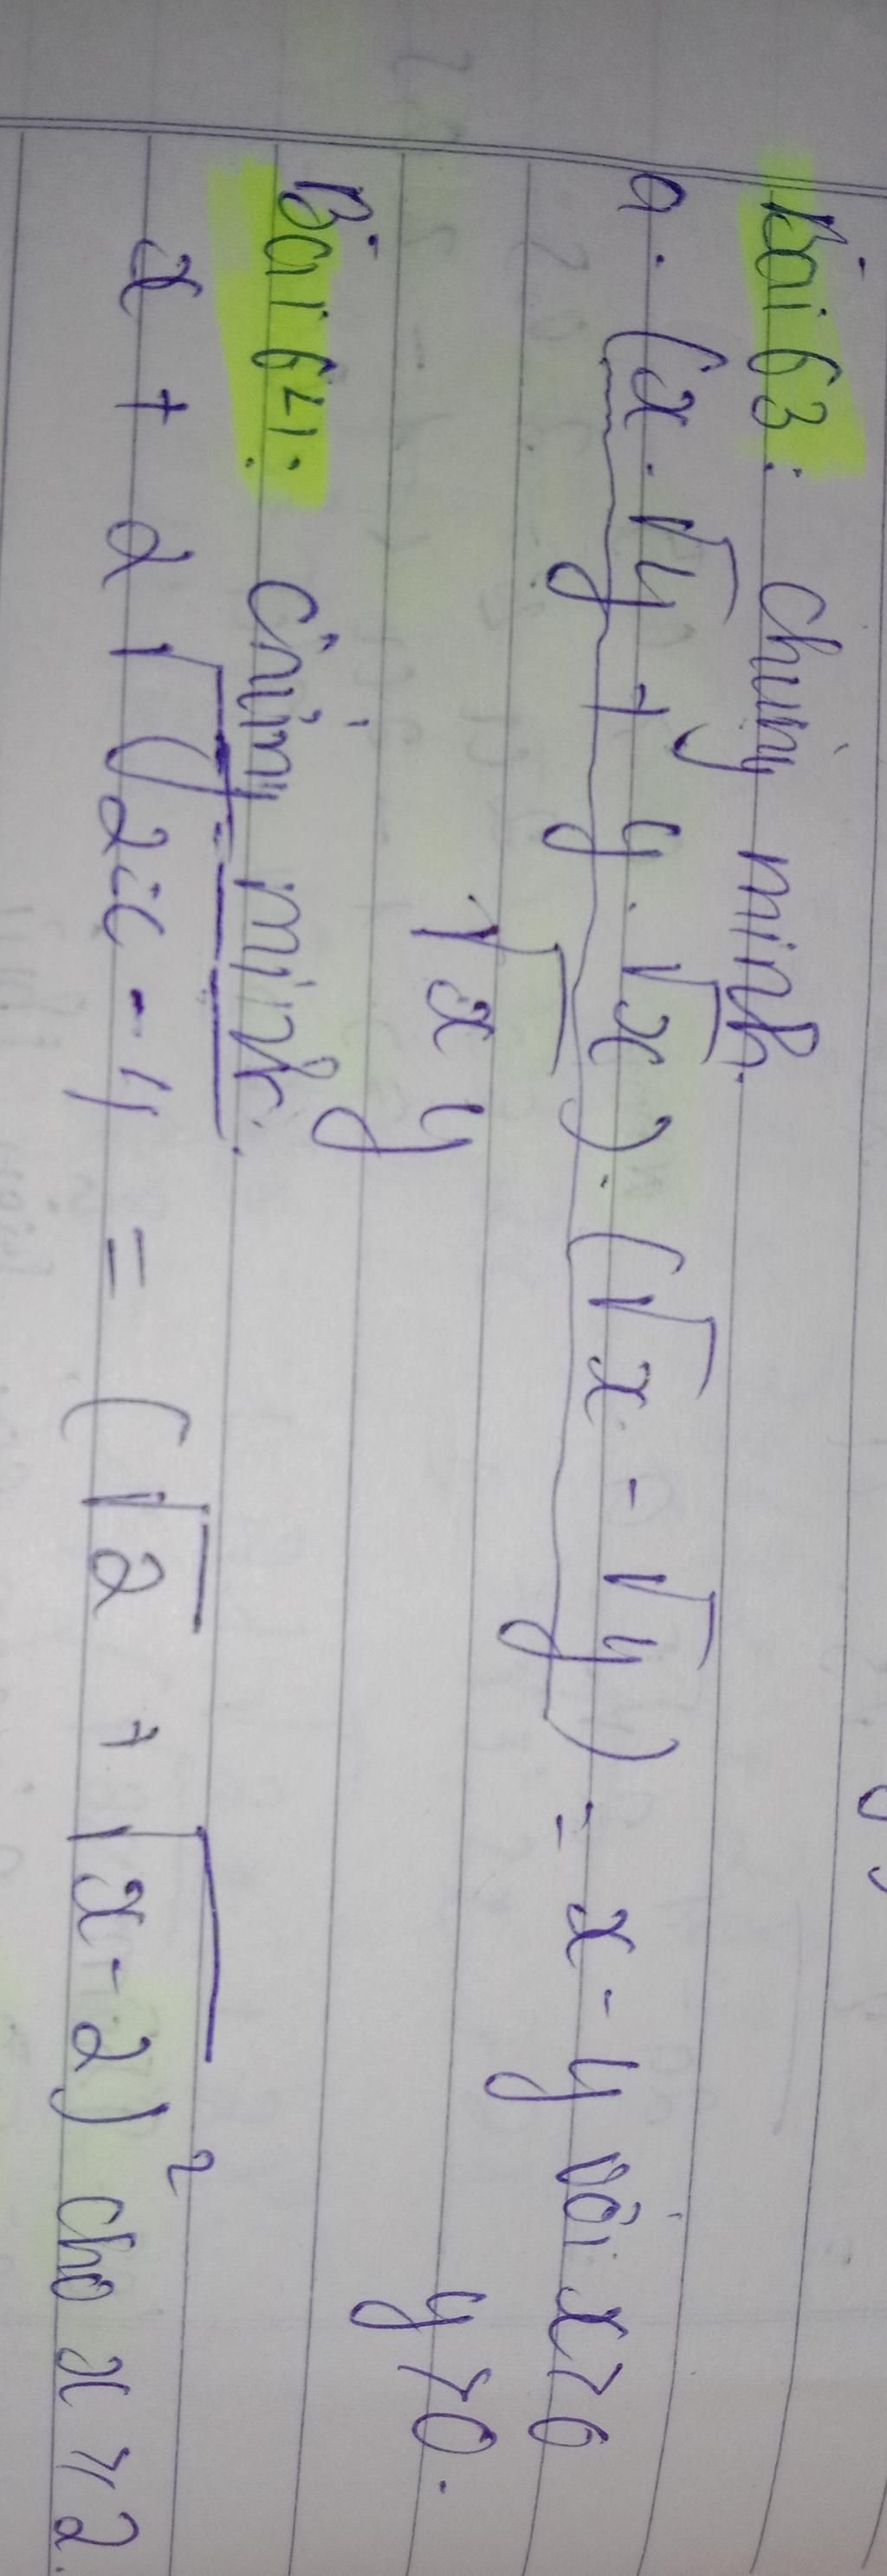 Bài 63: Chứng minh.
a. (x.√y + y.√x).(√x - √y) = x - y với x>0
√xy y>0.
Bài 64: Chứng minh.
x + 2√(2x-4 = (√2 + √x-2)² cho x ≥ 2.